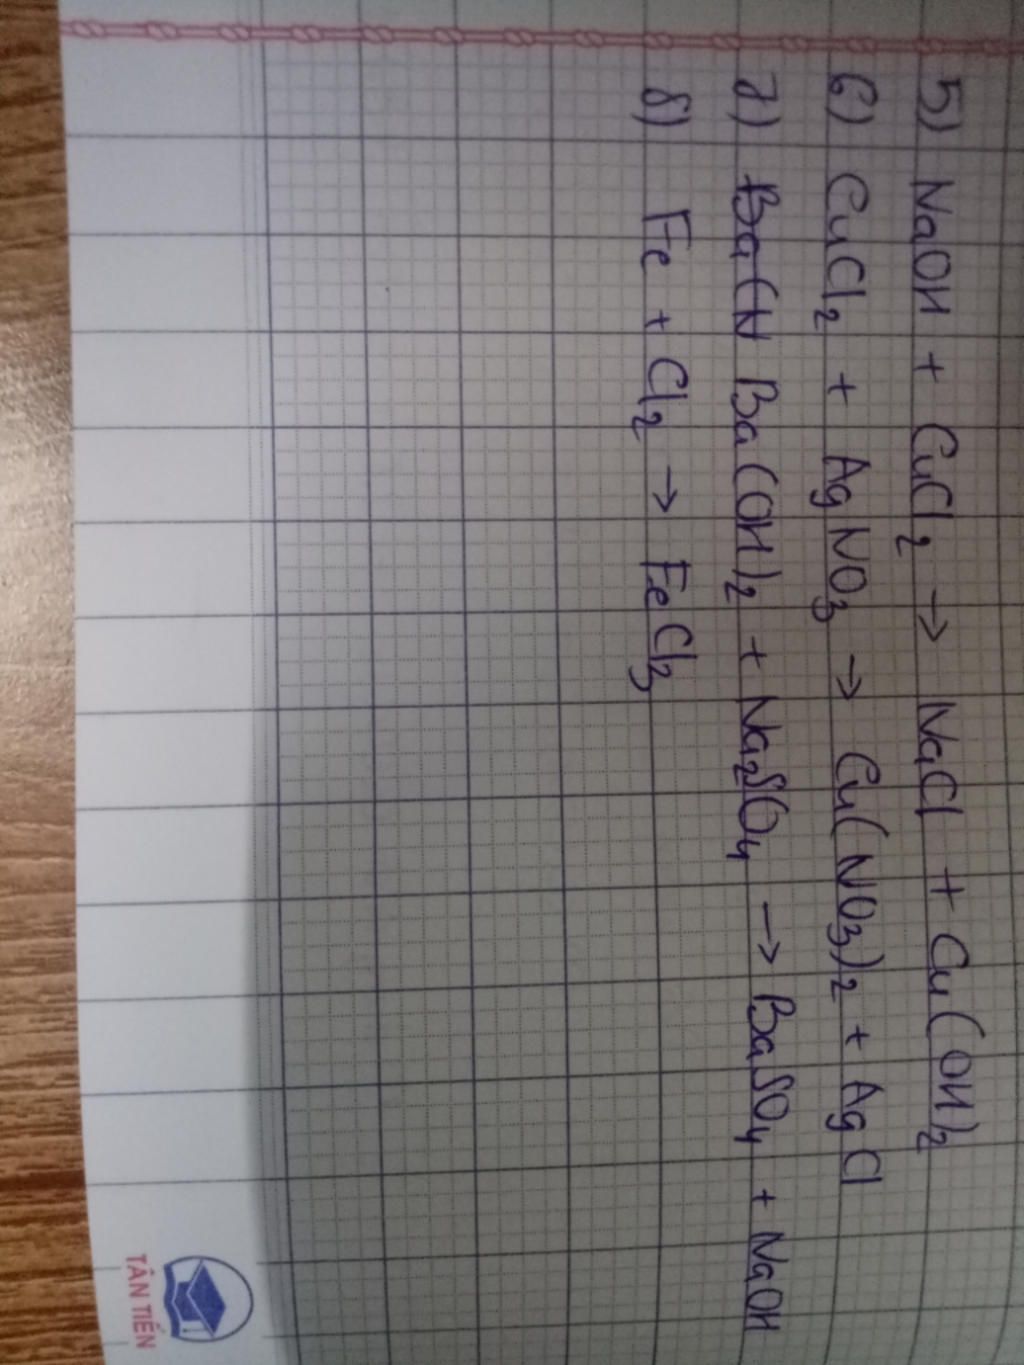 5) NaOH + CuCl₂ → NaCl + Cu(OH)₂
6) CuCl₂ + AgNO₃ → Cu(NO₃)₂ + AgCl
7) Ba(N Ba(OH)₂ + Na₂SO₄ → BaSO₄ + NaOH
8) Fe + Cl₂ → FeCl₃
TÂN TIẾN